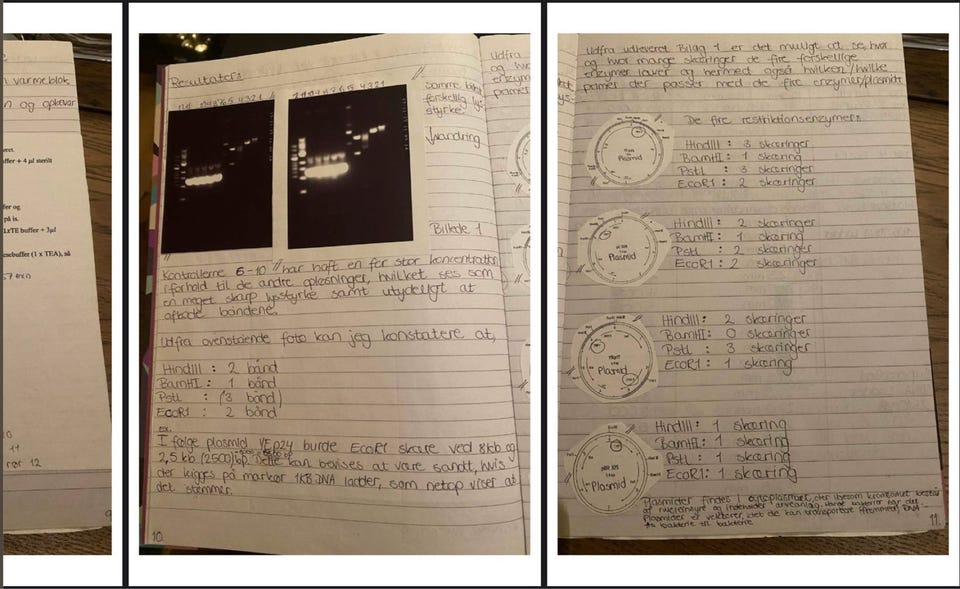 n varmeblok
n og opbevar
ffer + 4 µl sterilt
fer og
på is.
1xTE buffer + 3µl
sebuffer (1 x TEA), så
10
11
rør 12
Resultater:
5 4 3 2 1
5 4 3 2 1
Samme billede
forskellig lys-
styrke
Vandring
Billede 1
Kontrollerne 6-10 har haft en for stor koncentration
iforhold til de andre opløsninger, hvilket ses som
en meget skarp lysstyrke samt utydeligt at
aflæse båndene.
Udfra ovenstående foto kan jeg konstatere at,
HindIII: 2 bånd
BamHI: 1 bånd
PstI: (3 bånd)
EcoRI: 2 bånd
ex.
I følge plasmid VF024 burde EcoRI skære ved 8kb og
2,5 kb (2500)bp. Dette kan bevises at være sandt, hvis
der kigges på markør 1KB DNA ladder, som netop viser at
det stemmer.
10.
Udfra
og hvor
enzymer
primer
Udfra udleveret Bilag 1 er det muligt at se, hvor
og hvor mange skæringer de fire forskellige
enzymer laver og hermed også hvilken/hvilke
primer der passer med de fire enzym/plasmide
De fire restriktionsenzymer:
Plasmid
HindIII: 3 skæringer
BamHI: 1 skæring
PstI: 3 skæringer
EcoRI: 2 skæringer
Plasmid
HindIII: 2 skæringer
BamHI: 1 skæring
PstI: 2 skæringer
EcoRI: 2 skæringer
Plasmid
HindIII: 2 skæringer
BamHI: 0 skæringer
PstI: 3 skæringer
EcoRI: 1 skæring
Plasmid
HindIII: 1 skæring
BamHI: 1 skæring
PstI: 1 skæring
EcoRI: 1 skæring
Plasmider findes i cytoplasmaet, der ligesom kromosomet består
af nucleinsyre og indeholder arveanlæg. Mange bakterier har det
Plasmider er vektorer, idet de kan transportere fremmed DNA
fra bakterie til bakterie
11.